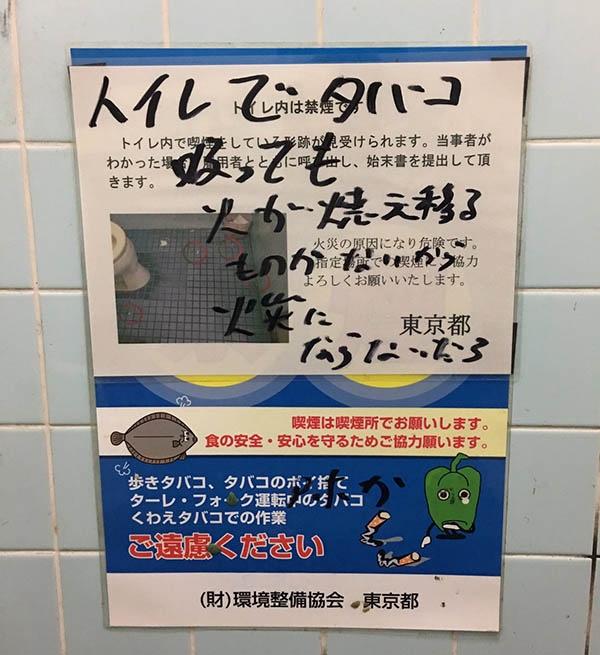 トイレ内は禁煙です
トイレ内で喫煙をしている形跡が見受けられます。当事者が
わかった場合 用者とともに呼び出し、始末書を提出して頂
きます。
火災の原因になり危険です。
指定場所で 喫煙に 協力
よろしくお願いいたします。
東京都
トイレでタバコ
吸っても
火が燃え移る
ものがないから
火災に
ならないだろ
喫煙は喫煙所でお願いします。
食の安全・安心を守るためご協力願います。
歩きタバコ、タバコのポイ捨て
ターレ・フォーク運転中のタバコ
くわえタバコでの作業
ご遠慮ください
(財)環境整備協会 東京都